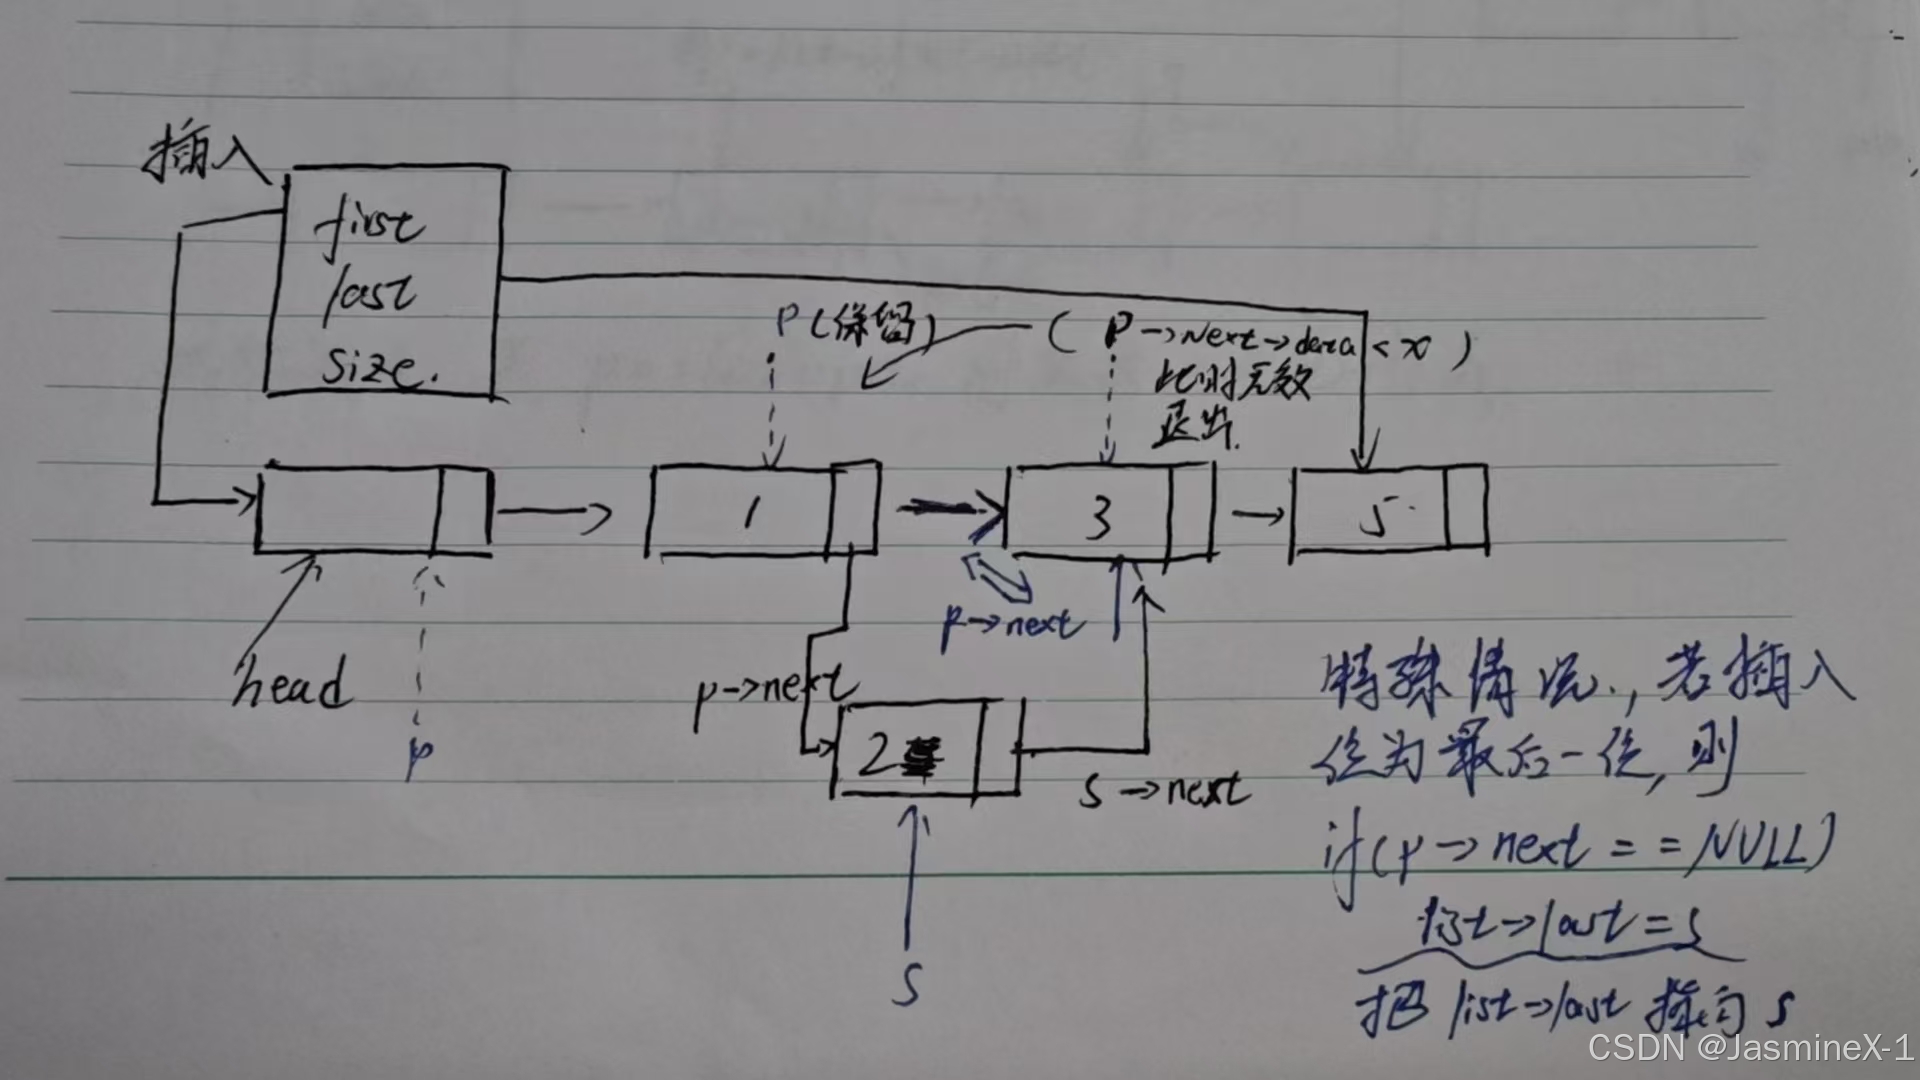 插入
first
last
size.
P(保留)
( P→Next→data < x )
此时无效
退出.
1
3
5
head
p
p→next
p→next
2
s→next
s
特殊情况., 若插入
位为最后一位, 则
if(p→next==NULL)
list→last=s
把 list→last 指向 s
CSDN @JasmineX-1